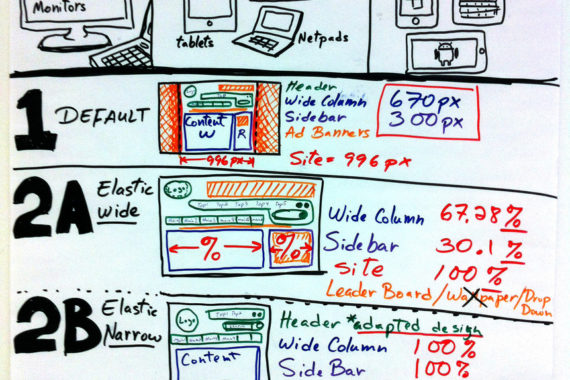 Monitors
tablets
Netpads
1 DEFAULT
Content
W
R
996 px
Header
Wide Column 670 px
Sidebar 300 px
Ad Banners
Site = 996 px
2A Elastic
wide
Logo
Top1 Top2 Top3 Top4 Top5
% %
Wide Column 67.28 %
Sidebar 30.1 %
Site 100 %
Leader Board / Wallpaper / Drop
Down
2B Elastic
Narrow
Logo
Content
Header *adapted design
Wide Column 100 %
Side Bar 100 %